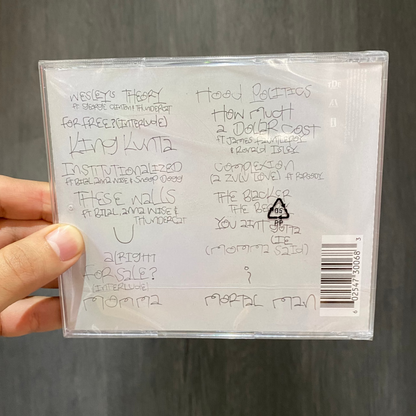 WESLEY'S THEORY
FT GEORGE CLINTON & THUNDERCAT
FOR FREE? (INTERLUDE)
KING KUNTA
INSTITUTIONALIZED
FT BILAL, ANNA WISE & SNOOP DOGG
THESE WALLS
FT BILAL, ANNA WISE &
THUNDERCAT
U
ALRIGHT
FOR SALE?
(INTERLUDE)
MOMMA
HOOD POLITICS
HOW MUCH
A DOLLAR COST
FT JAMES FAUNTLEROY
& RONALD ISLEY
COMPLEXION
(A ZULU LOVE) FT RAPSODY
THE BLACKER
THE BE
YOU AIN'T GOTTA
LIE
(MOMMA SAID)
i
MORTAL MAN
PP
6 02547 30068 3